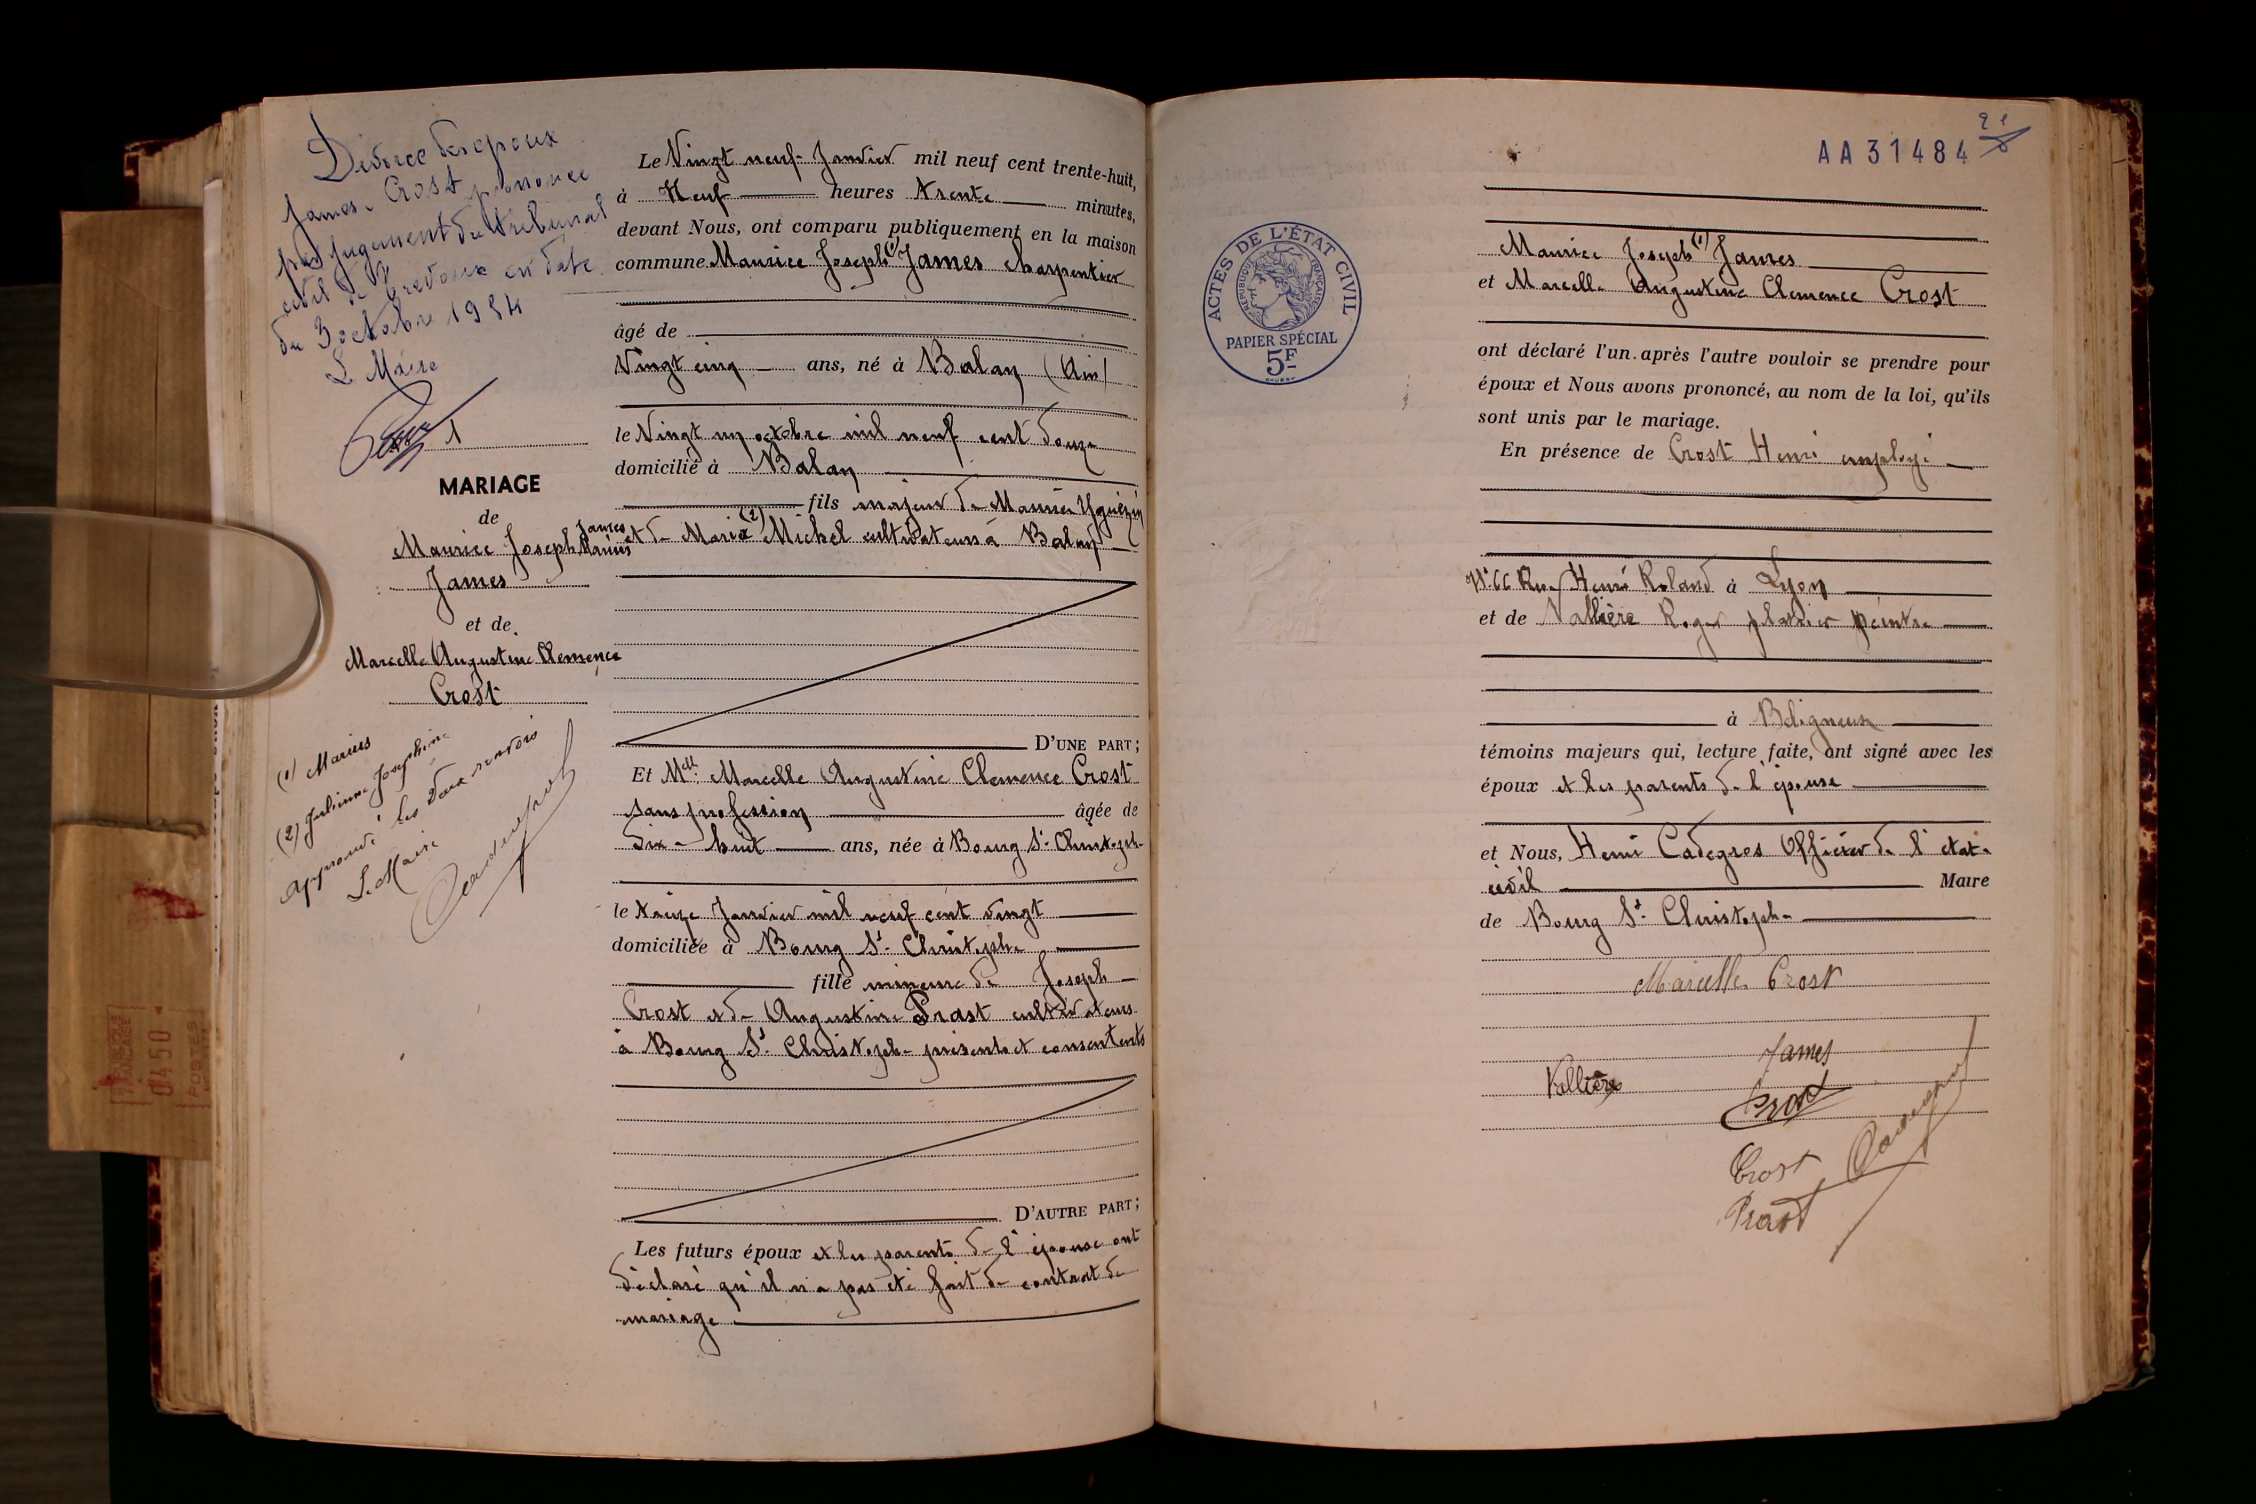 Divorce des époux
James - Crost prononcé
par jugement du tribunal
civil de Trévoux en date
du 3 octobre 1954
Le Maire
1
MARIAGE
de
Maurice Joseph Marius
James
James
et de
Marcelle Augustine Clemence
Crost
(1) Marius
(2) Julienne Joséphine
approuvé les deux renvois
Le Maire
Le Vingt neuf Janvier mil neuf cent trente-huit,
à Neuf heures trente minutes,
devant Nous, ont comparu publiquement en la maison
commune Maurice Joseph (1) James charpentier
âgé de
Vingt cinq ans, né à Balan (Ain)
le Vingt un octobre mil neuf cent douze
domicilié à Balan
fils majeur de Maurice
et de Marie (2) Michel cultivateurs à Balan
D'UNE PART;
Et Melle Marcelle Augustine Clemence Crost
sans profession âgée de
dix-huit ans, née à Bourg St Christophe
le treize Janvier mil neuf cent vingt
domiciliée à Bourg St Christophe
fille mineure de Joseph
Crost et de Augustine Prost cultivateurs
à Bourg St Christophe présents et consentents
D'AUTRE PART;
Les futurs époux et les parents de l'épouse ont
déclaré qu'il n'a pas été fait de contrat de
mariage
ACTES DE L'ÉTAT CIVIL
RÉPUBLIQUE FRANÇAISE
PAPIER SPÉCIAL
5F
AA31484
21
Maurice Joseph (1) James
et Marcelle Augustine Clemence Crost
ont déclaré l'un après l'autre vouloir se prendre pour
époux et Nous avons prononcé, au nom de la loi, qu'ils
sont unis par le mariage.
En présence de Crost Henri employé
N° 66 Rue Henri Roland à Lyon
et de Vallière Roger platrier peintre
à Béligneux
témoins majeurs qui, lecture faite, ont signé avec les
époux et les parents de l'épouse
et Nous, Henri Cadegros Officier de l'état-
civil Maire
de Bourg St Christophe
Marcelle Crost
James
Vallière
Crost
Crost
Prost
0450
POSTES